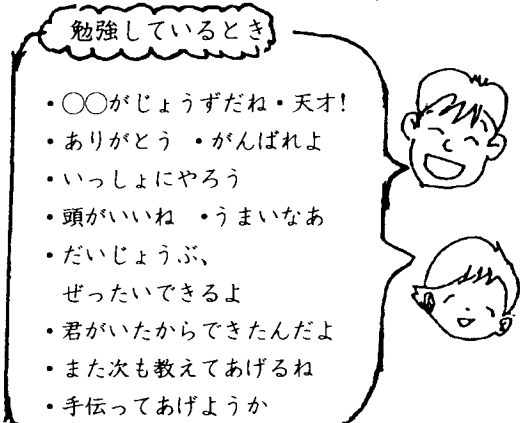 勉強しているとき
・○○がじょうずだね・天才!
・ありがとう ・がんばれよ
・いっしょにやろう
・頭がいいね ・うまいなあ
・だいじょうぶ、
ぜったいできるよ
・君がいたからできたんだよ
・また次も教えてあげるね
・手伝ってあげようか